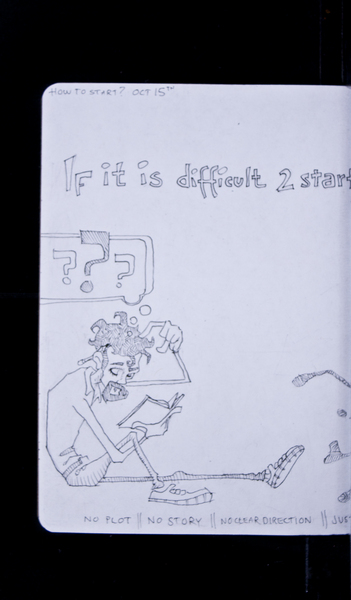 HOW TO START? OCT 15TH
IF it is difficult 2 start
???
NO PLOT || NO STORY || NO CLEAR DIRECTION || JUS